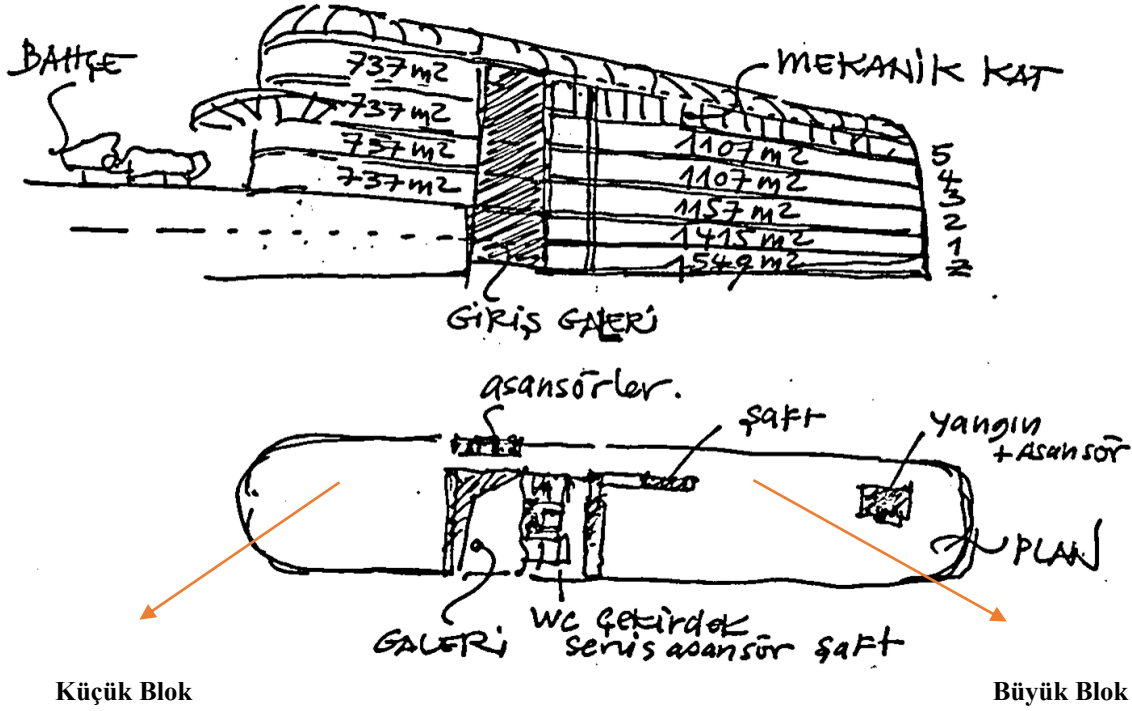 BAHÇE
737 m2
737 m2
737 m2
737 m2
MEKANİK KAT
1107 m2
1107 m2
1157 m2
1415 m2
1549 m2
5
4
3
2
1
Z
GİRİŞ GALERİ
asansörler.
şaft
yangın
+ Asansör
PLAN
GALERİ
WC çekirdek
servis asansör şaft
Küçük Blok
Büyük Blok